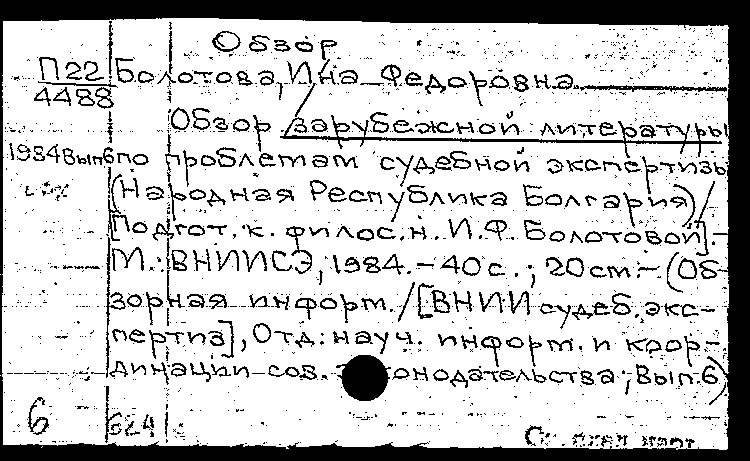 Обзор
П22 Болотова, Инa Федоровна
4488
Обзор зарубежной литературы
1984 Вып6 по проблемам судебной экспертизы
(Народная Республика Болгария) /
[Подгот. к. филос. н. И.Ф. Болотовой]. -
М.: ВНИИСЭ, 1984. - 40 с.; 20 см. - (Об-
зорная информ. / [ВНИИ судеб. экс-
пертиз], Отд. науч. информ. и коор-
динации сов. законодательства; Вып. 6)
6 624